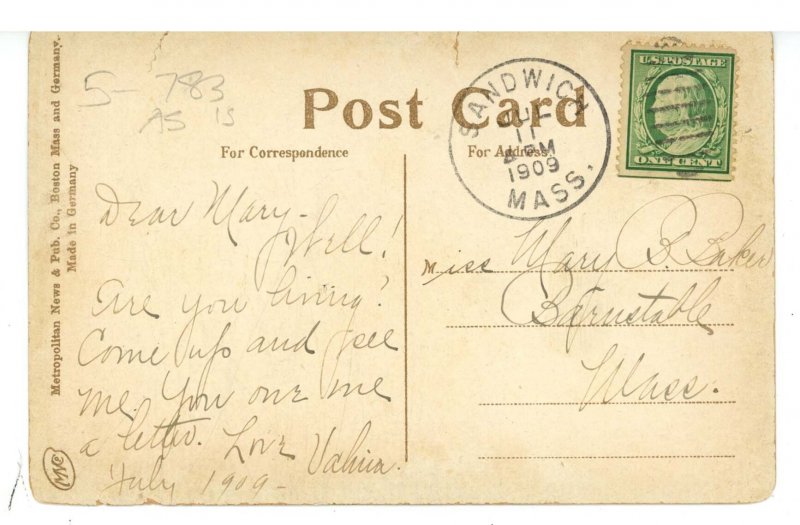 5-783
AS IS
Post Card
For Correspondence
For Address.
SANDWICH
JUL
11
PM
1909
MASS.
U.S. POSTAGE
ONE CENT
Metropolitan News & Pub. Co., Boston Mass and Germany.
Made in Germany
Dear Mary-
Well!
Are you living?
Come up and see
me. You owe me
a letter. Love
July 1909-
Miss Mary B. Baker
Barnstable
Mass.